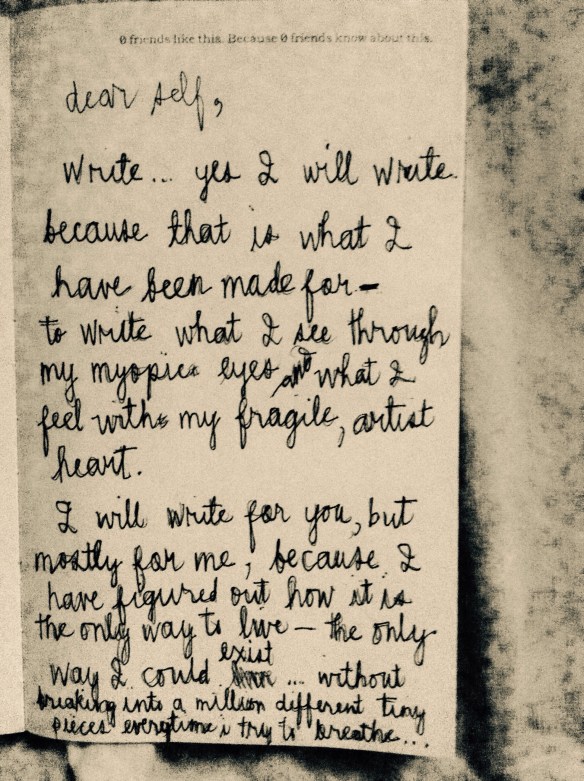 0 friends like this. Because 0 friends know about this.
dear self,
Write... yes I will write
because that is what I
have been made for-
to write what I see through
my myopic eyes and what I
feel with my fragile, artist
heart.
I will write for you, but
mostly for me, because I
have figured out how it is
the only way to live - the only
way I could exist ... without
breaking into a million different tiny
pieces everytime i try to breathe...